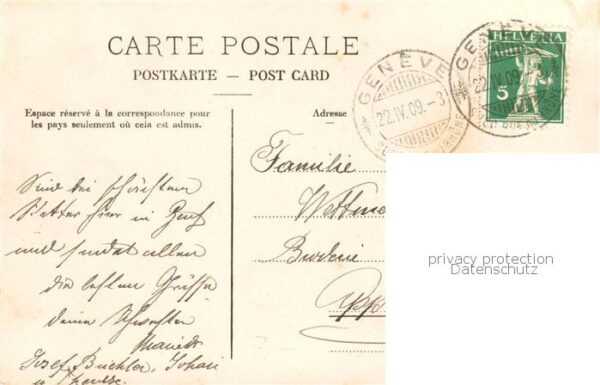 CARTE POSTALE
POSTKARTE — POST CARD
Espace réservé à la correspondance pour
les pays seulement où cela est admis.
Adresse
GENÈVE
22.IV.09.-3
GENÈVE
22.IV.09
HELVETIA
5
Familie
privacy protection
Datenschutz
Sind bei schönstem
Wetter hier in Genf
und sendet allen
die besten Grüsse
deine Schwester
Marie
Josef Büchler, Johari